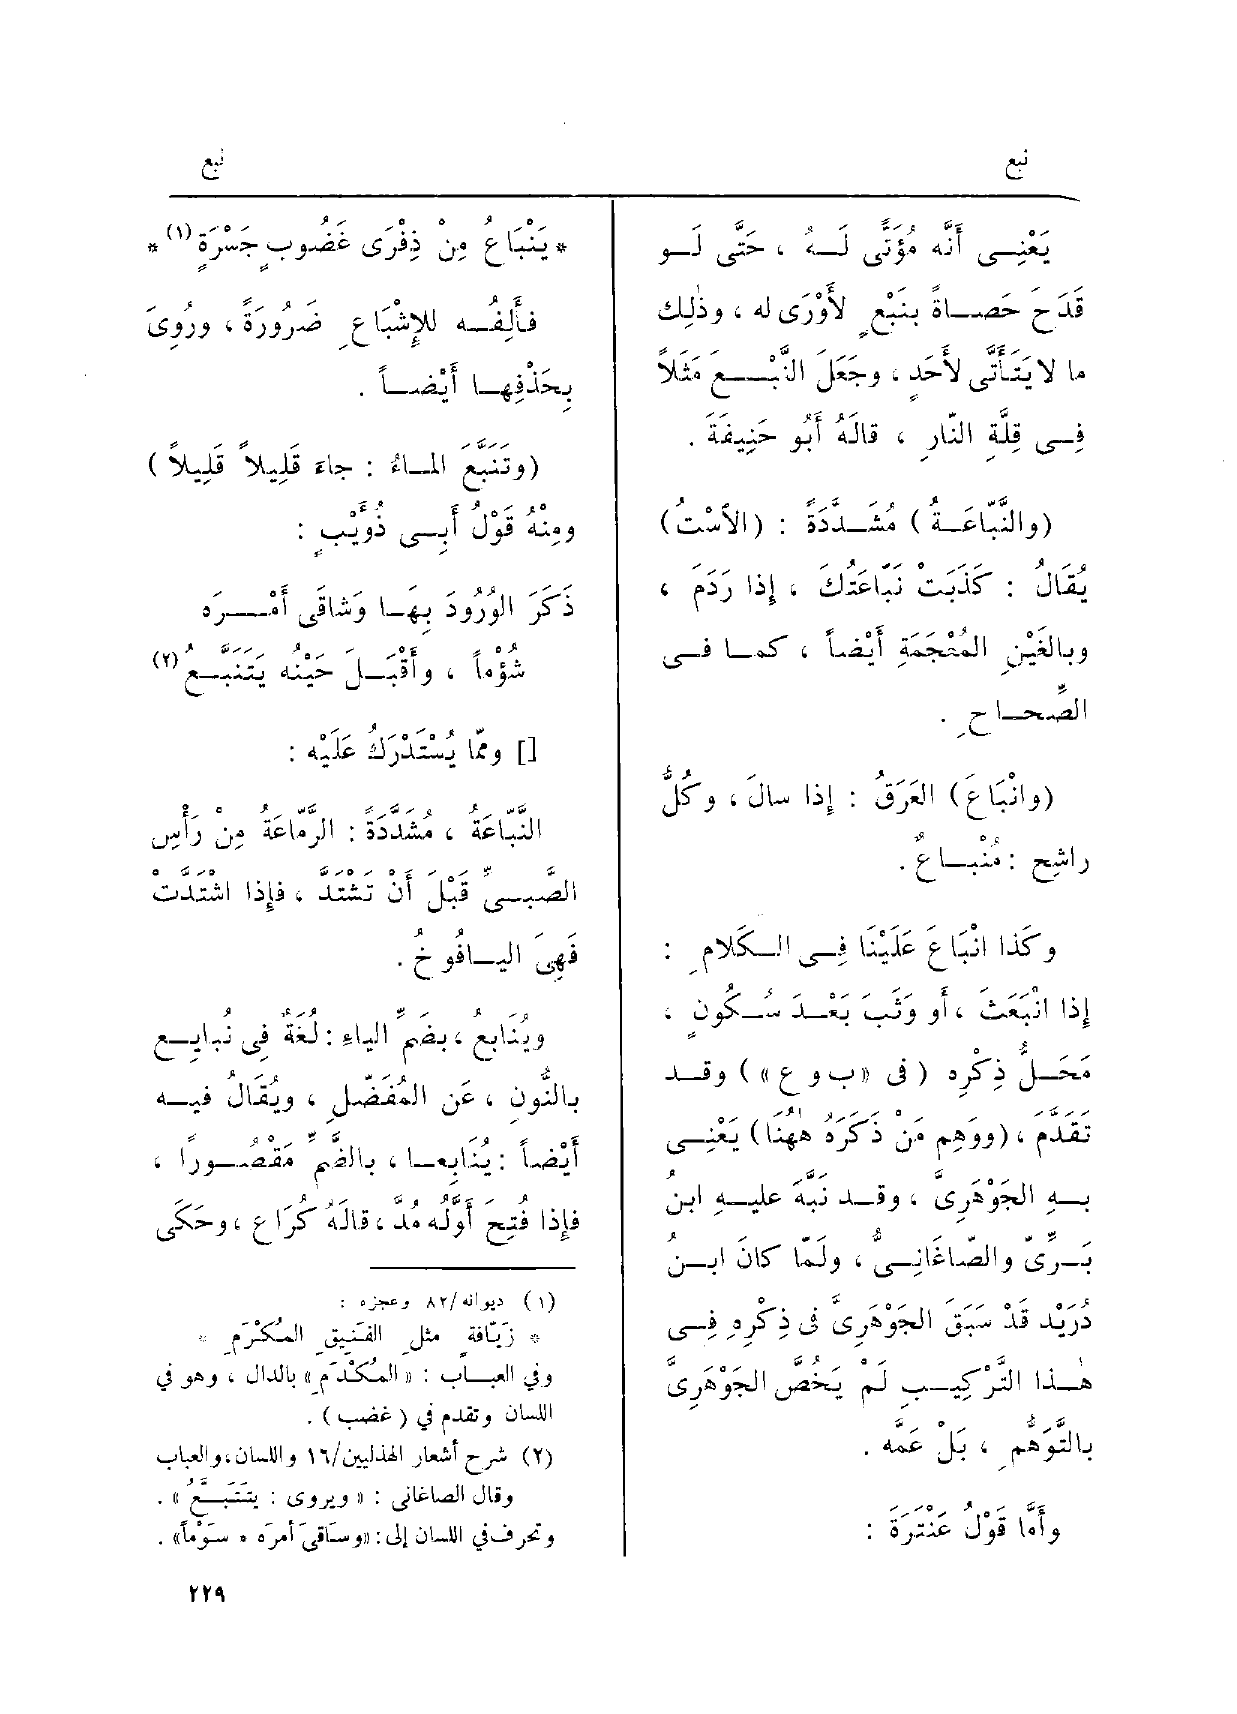 نبع
نبع
يَعْنِى أَنَّه مُؤَتًّى لَهُ ، حَتَّى لَو
قَدَحَ حَصَاةً بِنَبْعٍ لأَوْرَى له ، وذٰلِك
ما لا يَتَأَتَّى لأَحَدٍ ، وجَعَلَ النَّبْعَ مَثَلاً
فِى قِلَّةِ النّارِ ، قالَهُ أَبُو حَنِيفَةَ .
(والنَّبّاعَةُ) مُشَدَّدَةً : (الأسْتُ)
يُقَالُ : كَذَبَتْ نَبّاعَتُكَ ، إِذا رَدَمَ ،
وبالغَيْنِ المُعْجَمَةِ أَيْضاً ، كما فى
الصِّحاحِ .
(وانْبَاعَ) العَرَقُ : إِذا سالَ ، وكُلُّ
راشِحٍ : مُنْبَاعٌ .
وكَذا انْبَاعَ عَلَيْنَا فِى الكَلامِ :
إِذا انْبَعَثَ ، أَو وَثَبَ بَعْدَ سُكُونٍ ،
مَحَلُّ ذِكْرِه (فى «ب و ع») وقد
تَقَدَّم ، (ووَهِم مَن ذَكَرَهُ هٰهُنَا) يَعْنِى
بهِ الجَوْهَرِىَّ ، وقد نَبَّهَ عليهِ ابنُ
بَرِّىّ والصّاغَانِىُّ ، ولَمّا كانَ ابنُ
دُرَيْد قَدْ سَبَقَ الجَوْهَرِىَّ فى ذِكْرِه فِى
هٰذا التَّرْكِيبِ لَمْ يَخُصَّ الجَوْهَرِىَّ
بالتَّوَهُّمِ ، بَلْ عَمَّه .
وأَمَّا قَوْلُ عَنْتَرَةَ :
* يَنْبَاعُ مِنْ ذِفْرَى غَضُوبٍ جَسْرَةٍ (١) *
فأَلِفُه للإِشْبَاعِ ضَرُورَةً ، ورُوِىَ
بِحَذْفِها أَيْضاً .
(وتَنَبَّعَ الماءُ : جاءَ قَلِيلاً قَلِيلاً)
ومِنْهُ قَوْلُ أَبِى ذُوَيْبٍ :
ذَكَرَ الوُرُودَ بِهَا وَشاقَى أَمْرَه
شُؤْماً ، وأَقْبَلَ حَيْنُه يَتَنَبَّعُ (٢)
[] وممّا يُسْتَدْرَكُ عَلَيْه :
النَّبّاعَةُ ، مُشَدَّدَةً : الرَّمّاعَةُ مِنْ رَأْسِ
الصَّبِىِّ قَبْلَ أَنْ تَشْتَدَّ ، فإِذا اشْتَدَّتْ
فَهِىَ اليافُوخُ .
ويُنَابع ، بضَمِّ الياءِ : لُغَةٌ فى نُبايِع
بالنُّونِ ، عَن المُفَضَّلِ ، ويُقَالُ فيه
أَيْضاً : يُنَابِعا ، بالضَّمِّ مَقْصُوراً ،
فإِذا فُتِحَ أَوَّلُه مُدَّ ، قالَهُ كُرَاع ، وحَكَى
(١) ديوانه/٨٢ وعجزه :
* زَيّافَةٍ مثلِ الفَنِيقِ المُكْرَمِ *
وفي العباب : «المُكْدَمِ» بالدال ، وهو في
اللسان وتقدم في (غضب) .
(٢) شرح أشعار الهذليين/١٦ واللسان، والعباب
وقال الصاغانى : «ويروى : يَتَتَبَّعُ» .
وتحرف في اللسان إلى : «وسَاقَى أمرَه * سَوْماً» .
٢٢٩